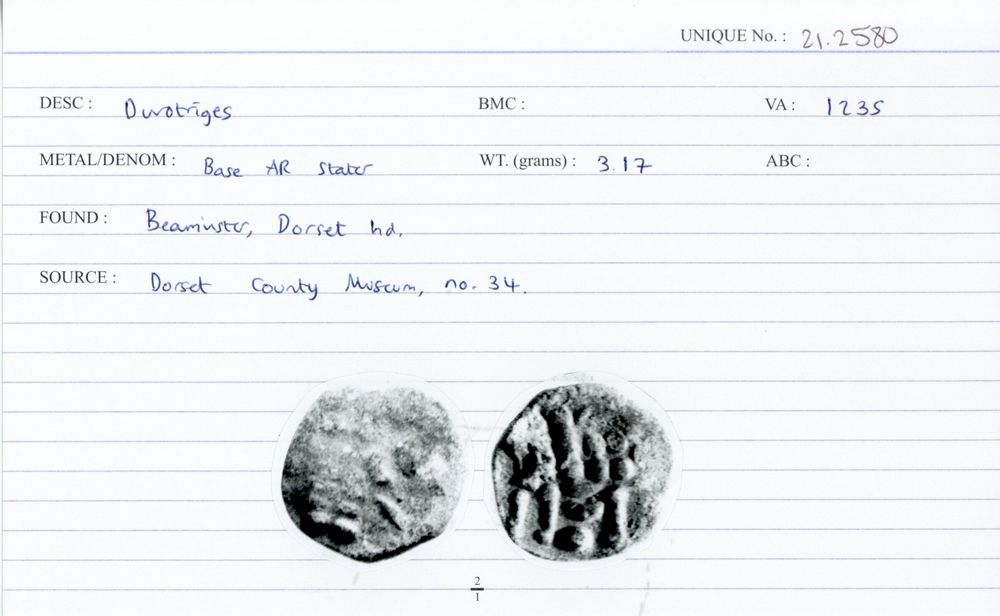 UNIQUE No. : 21.2580
DESC : Durotriges BMC : VA : 1235
METAL/DENOM : Base AR stater WT. (grams) : 3.17 ABC :
FOUND : Beaminster, Dorset hd.
SOURCE : Dorset County Museum, no. 34.
2
1